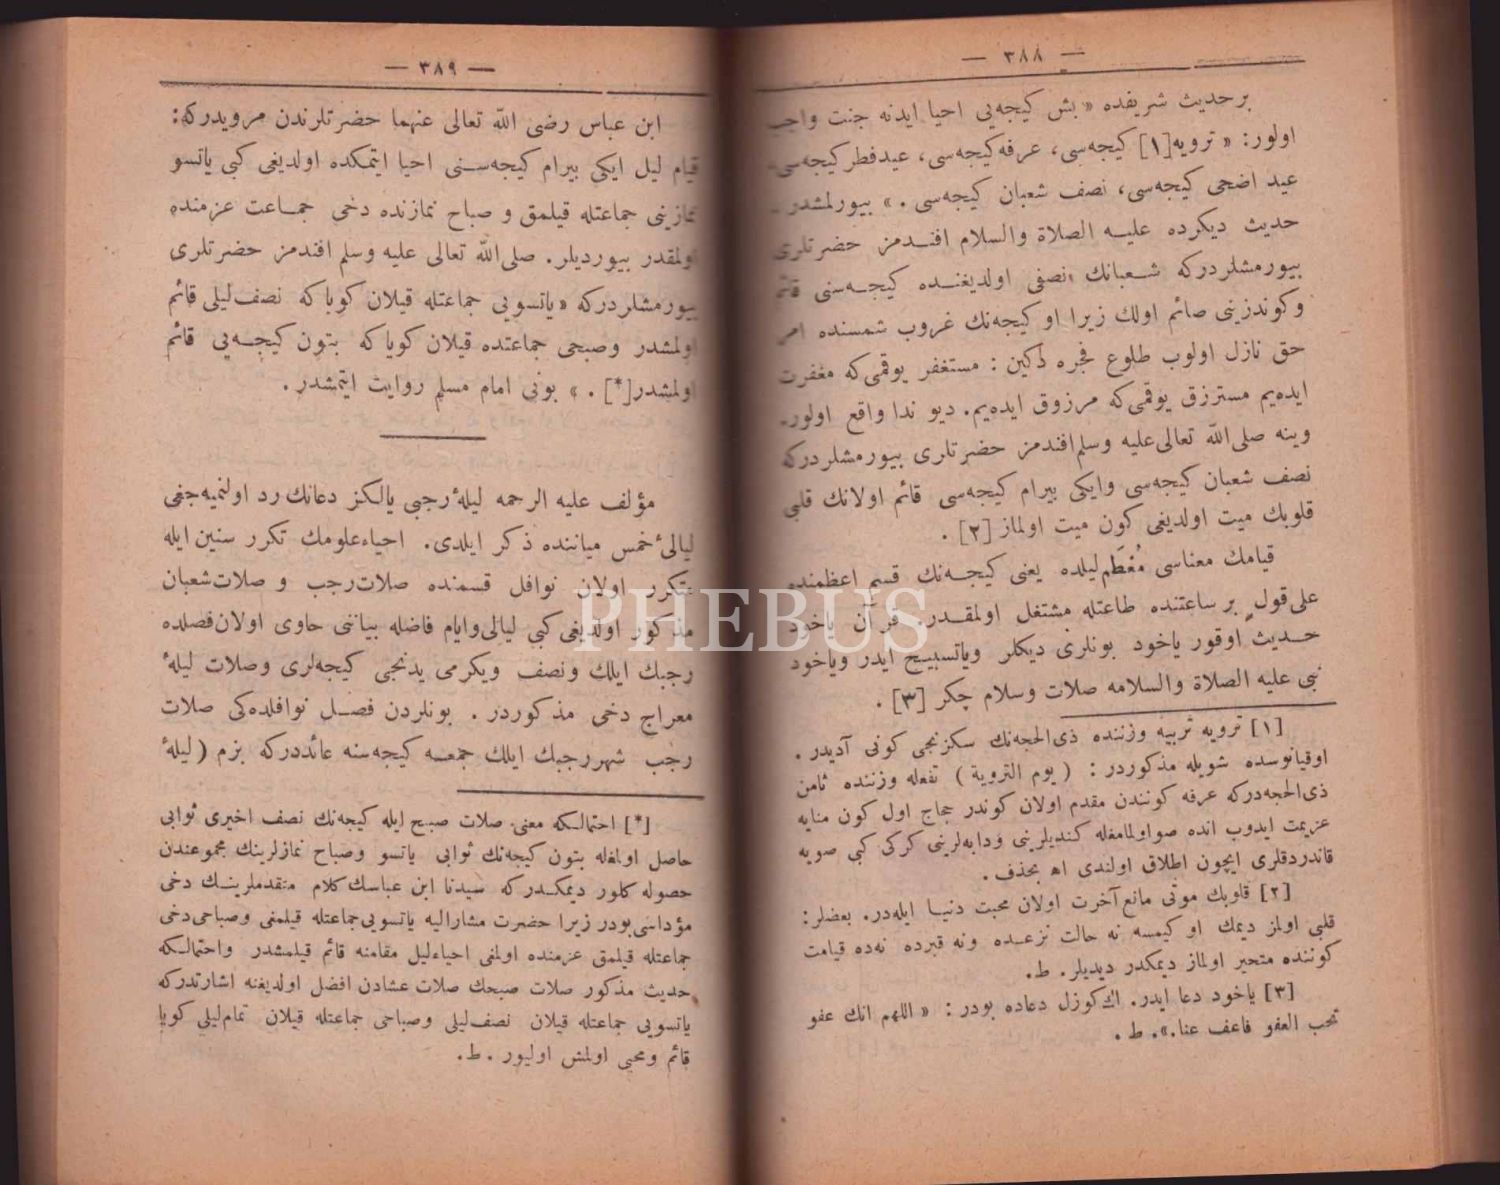 — ٣٨٨ —
برحديث شريفده « بش كيجه‌يى احيا ايدنه جنت واجب
اولور: « ترويه[١] كيجه‌سى، عرفه كيجه‌سى، عيدفطر كيجه‌سى،
عيد اضحى كيجه‌سى، نصف شعبان كيجه‌سى . » بيورلمشدر .
حديث ديكرده عليه الصلاة والسلام افندمز حضرتلرى
بيورمشلردركه شعبانك نصفى اولديغنده كيجه‌سنى قائم
وكوندزينى صائم اولك زيرا او كيجه‌نك غروب شمسنده امر
حق نازل اولوب طلوع فجره دكين : مستغفر يوقمى‌كه مغفرت
ايده‌يم مسترزق يوقمى‌كه مرزوق ايده‌يم. ديو ندا واقع اولور.
وينه صلى‌الله تعالى‌عليه وسلم‌افندمز حضرتلرى بيورمشلردركه
نصف شعبان كيجه‌سى وايكى بيرام كيجه‌سى قائم اولانك قلبى
قلوبك ميت اولديغى كون ميت اولماز [٢] .
قيامك معناسى مُعْظَم‌ليلده يعنى كيجه‌نك قسم اعظمنده
على‌قولٍ بر ساعتنده طاعتله مشتغل اولمقدر. قرآن ياخود
حديث اوقور ياخود بونلرى ديكلر وياتسبيح ايدر وياخود
نبى عليه الصلاة والسلامه صلات وسلام چكر [٣] .
[١] ترويه تربيه وزننده ذى‌الحجه‌نك سكزنجى كونى آديدر .
اوقيانوسده شويله مذكوردر : ( يوم التروية ) تفعله وزننده ثامن
ذى‌الحجه‌دركه عرفه كونندن مقدم اولان كوندر حجاج اول كون منايه
عزيمت ايدوب انده صواولمامغله كنديلرينى ودابه‌لرينى كركى كبى صويه
قاندردقلرى ايچون اطلاق اولندى اه بحذف .
[٢] قلوبك موتى مانع‌آخرت اولان محبت دنيا ايله‌در. بعضلر:
قلبى اولمز ديمك او كيمسه نه حالت نزعده ونه قبرده نه‌ده قيامت
كوننده متحير اولماز ديمكدر ديديلر. ط.
[٣] ياخود دعا ايدر. اك كوزل دعاده بودر : « اللهم انك عفو
تحب العفو فاعف عنا.». ط .
— ٣٨٩ —
ابن عباس رضى الله تعالى عنهما حضرتلرندن مرويدركه:
قيام ليل ايكى بيرام كيجه‌سنى احيا ايتمكده اولديغى كبى ياتسو
نمازينى جماعتله قيلمق و صباح نمازنده دخى جماعت عزمنده
اولمقدر بيورديلر. صلى‌الله تعالى عليه وسلم افندمز حضرتلرى
بيورمشلردركه «ياتسويى جماعتله قيلان كوياكه نصف‌ليلى قائم
اولمشدر وصبحى جماعتده قيلان كوياكه بتون كيجه‌يى قائم
اولمشدر[*] . » بونى امام مسلم روايت ايتمشدر .
مؤلف عليه الرحمه ليلهٔ رجبى يالكز دعانك رد اولنميه‌جغى
ليالئ خمس مياننده ذكر ايلدى. احياءعلومك تكرر سنين‌ايله
متكرر اولان نوافل قسمنده صلات‌رجب و صلات‌شعبان
مذكور اولديغى كبى ليالى‌وايام فاضله بياننى حاوى اولان‌فصلده
رجبك ايلك ونصف ويكرمى يدنجى كيجه‌لرى وصلات ليلهٔ
معراج دخى مذكوردر . بونلردن فصل نوافلده‌كى صلات
رجب شهررجبك ايلك جمعه كيجه‌سنه عائددركه بزم (ليلهٔ
[*] احتمالكه معنى: صلات صبح ايله كيجه‌نك نصف اخيرى ثوابى
حاصل اولمغله بتون كيجه‌نك ثوابى ياتسو وصباح نمازلرينك مجموعندن
حصوله كلور ديمكدركه سيدنا ابن عباسك كلام متقدملرينك دخى
مؤداسى‌بودر زيرا حضرت مشاراليه ياتسويى‌جماعتله قيلمغى وصباحى‌دخى
جماعتله قيلمق عزمنده اولمغى احياءليل مقامنه قائم قيلمشدر واحتمالكه
حديث مذكور صلات صبحك صلات عشادن افضل اولديغنه اشارتدركه
ياتسويى جماعتله قيلان نصف‌ليلى وصباحى جماعتله قيلان تمام‌ليلى كويا
قائم ومحيى اولمش اوليور . ط.
PHEBUS